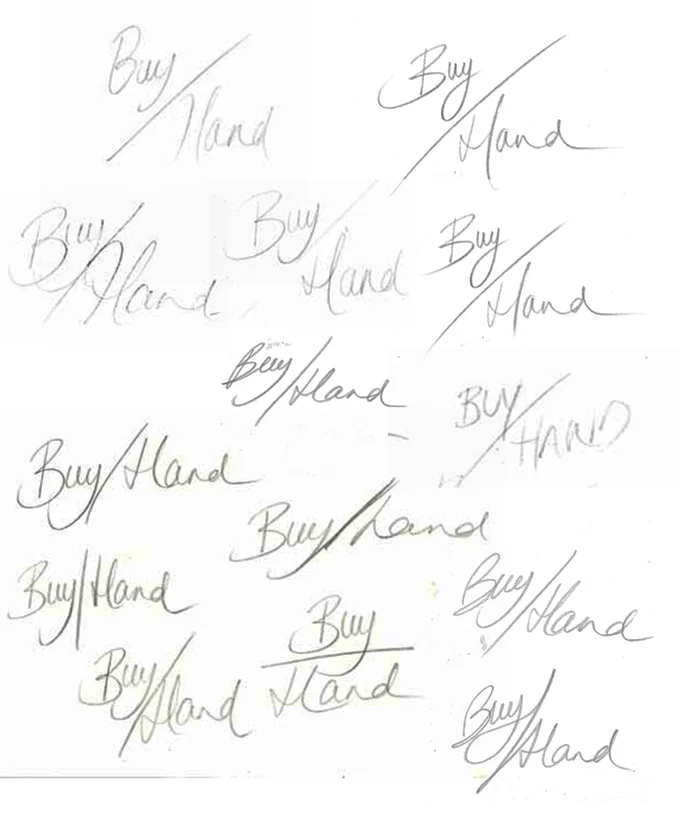 Buy/
Hand
Buy/
Hand
Buy/Hand
Buy/
Hand
Buy/
Hand
Buy/Hand
BUY/
HAND
Buy/Hand
Buy/hand
Buy/Hand
Buy/Hand
Buy
Hand
Buy/Hand
Buy/Hand